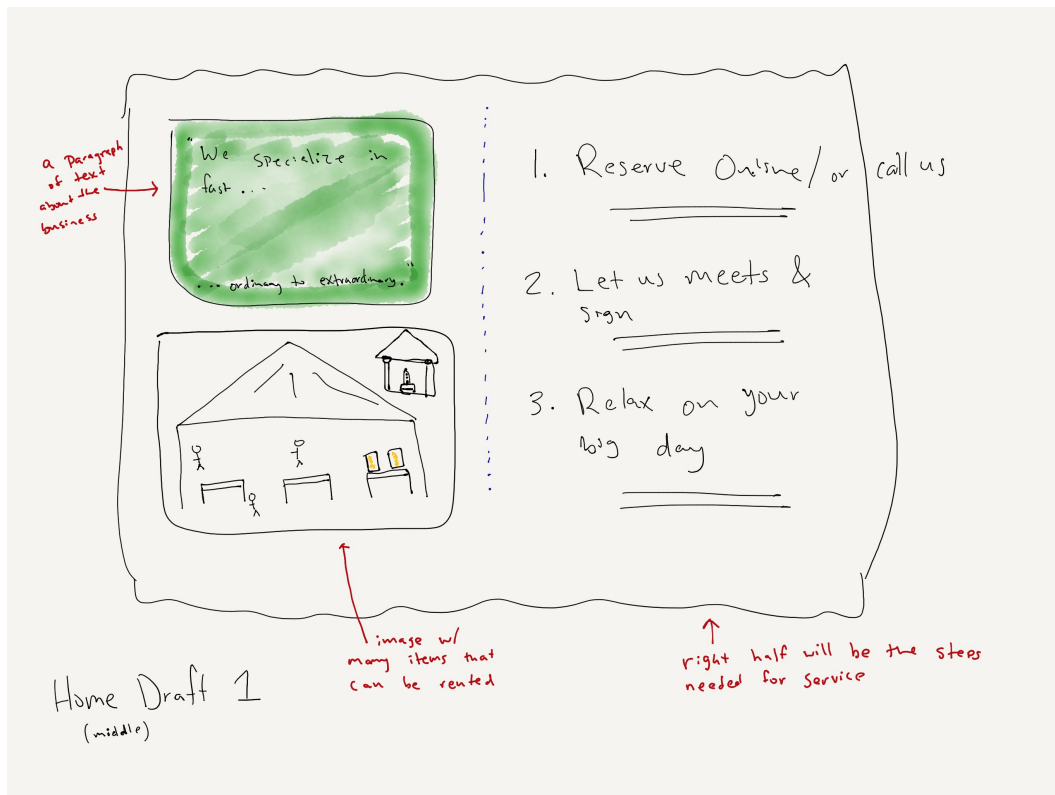 a paragraph
of text
about the
business
"We specialize in
fast ...
... ordinary to extraordinary."
1. Reserve Online/or call us
2. Let us meets &
sign
3. Relax on your
big day
image w/
many items that
can be rented
right half will be the steps
needed for service
Home Draft 1
(middle)